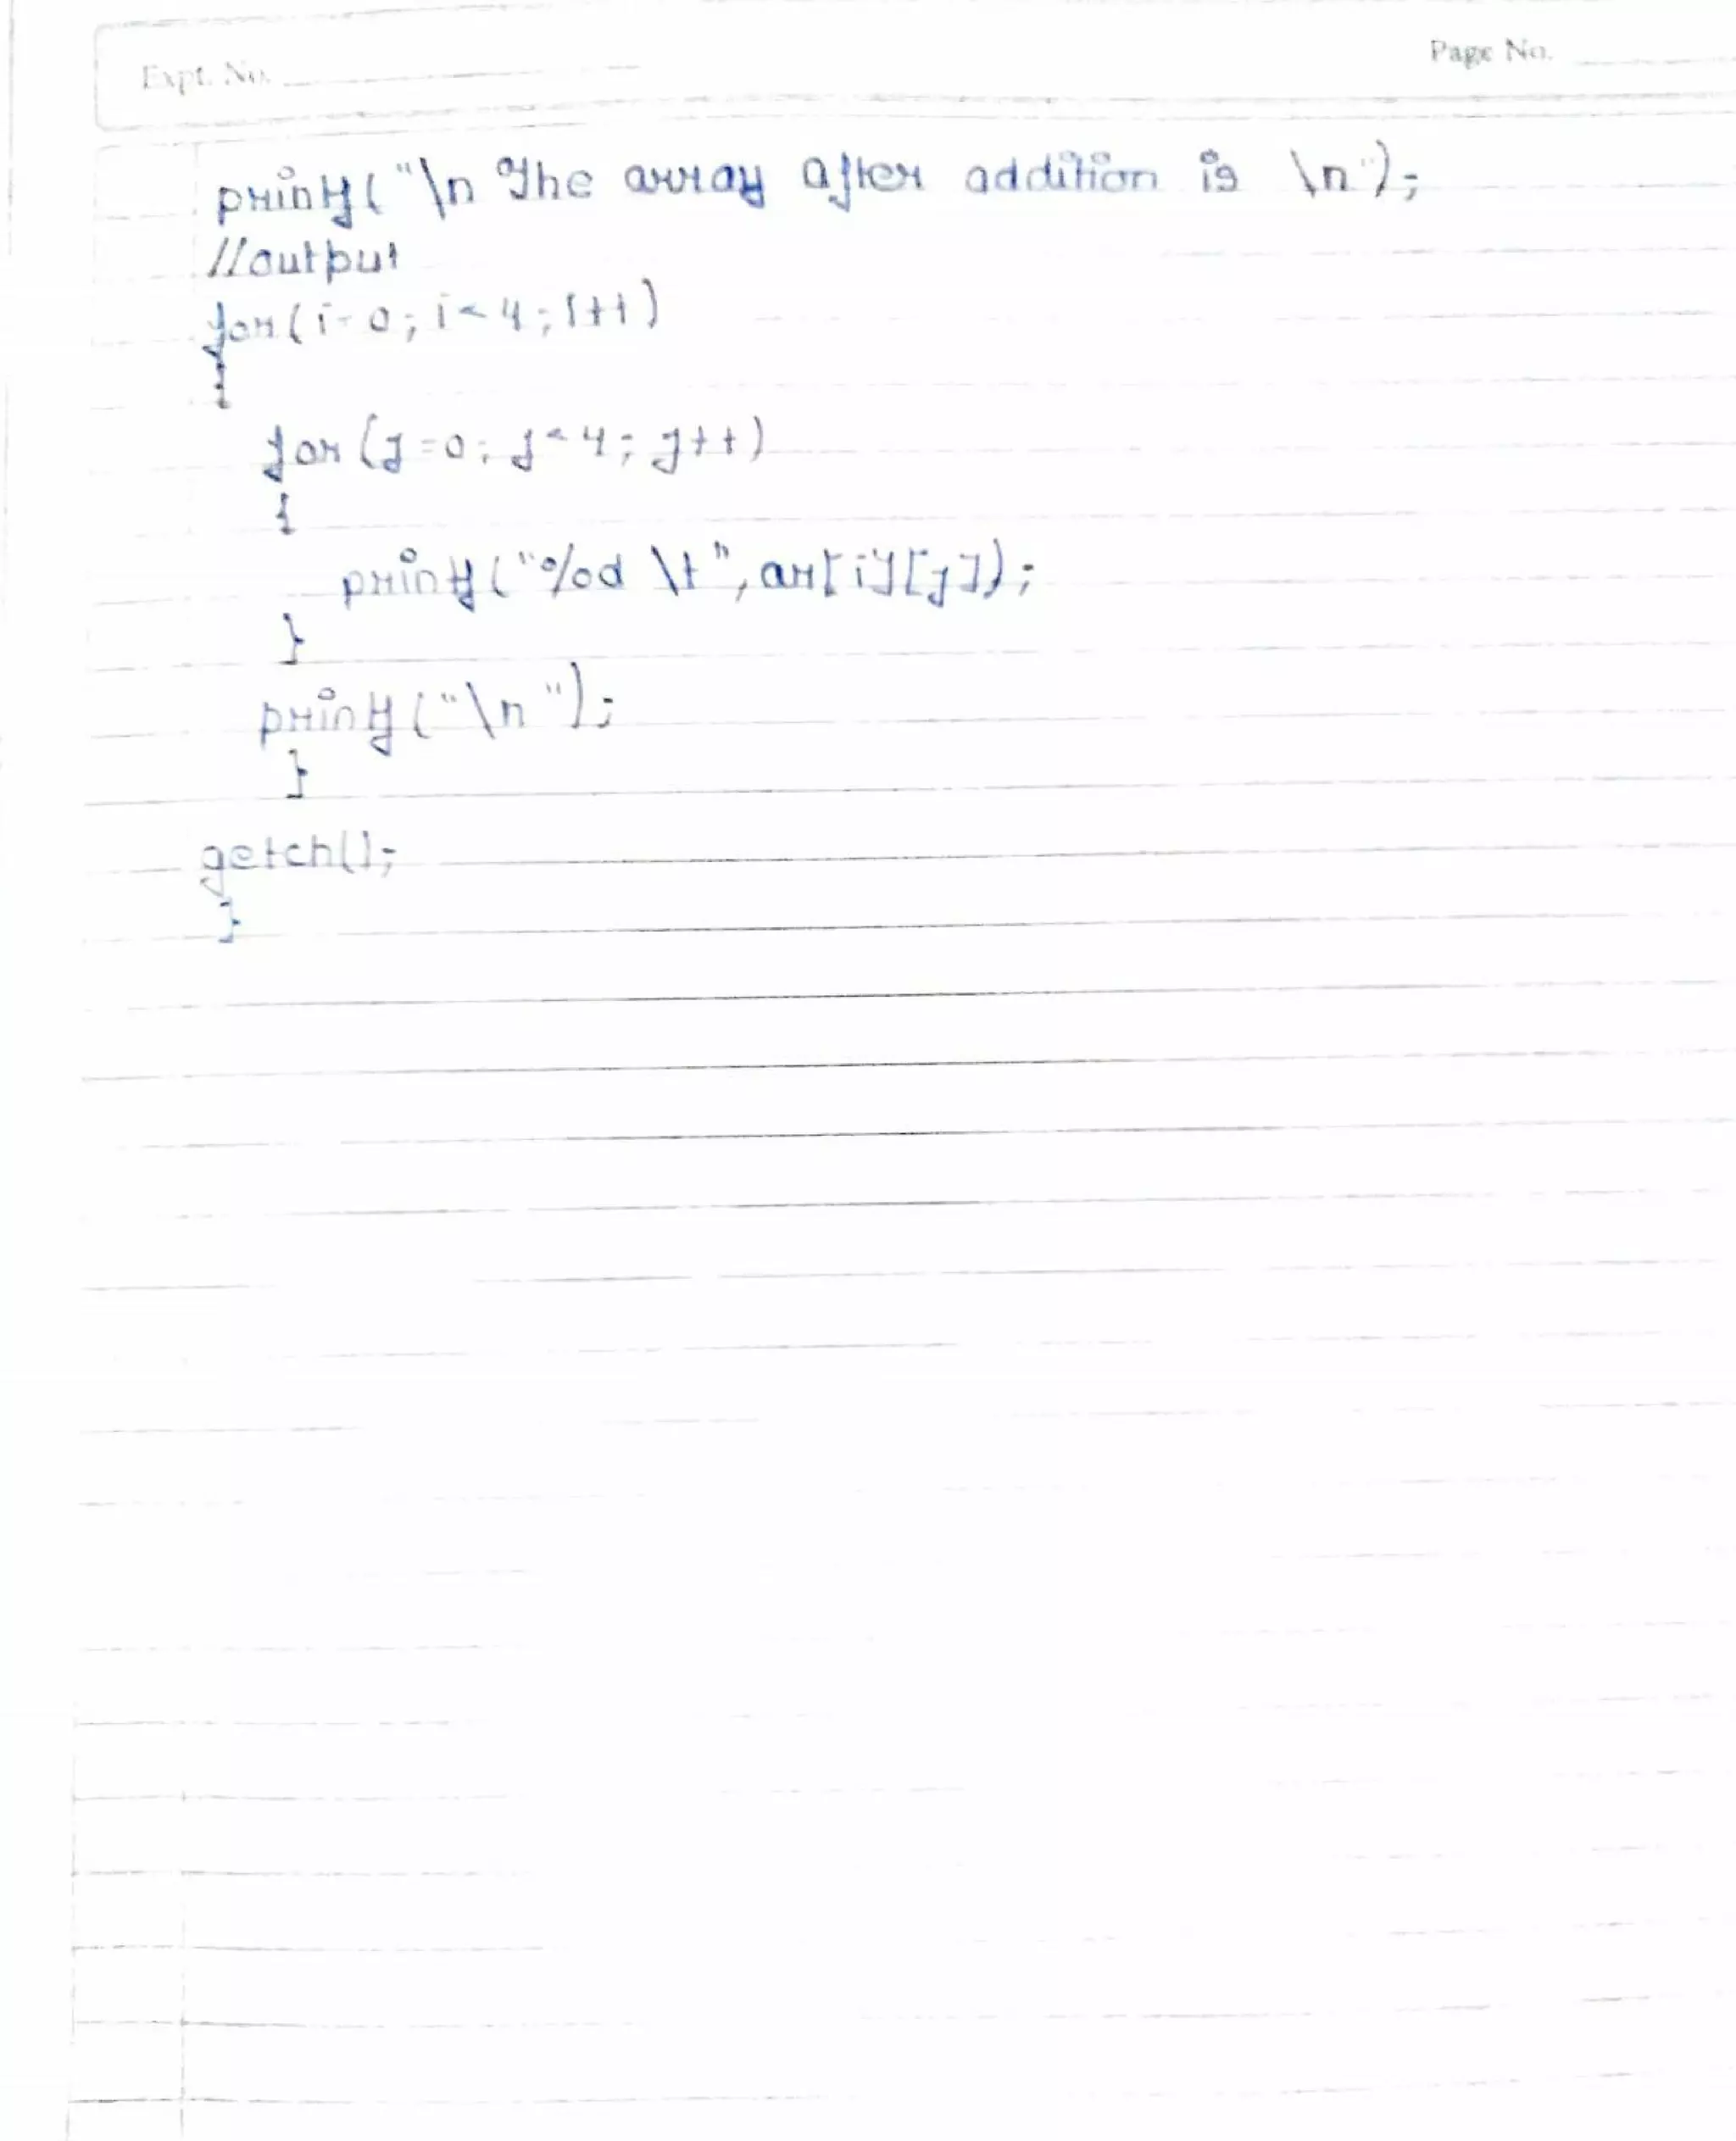 Expt. No.
Page No.
printf("\n The array after addition is \n");
//output
for(i=0; i<4; i++)
{
for(j=0; j<4; j++)
{
printf("%d \t", ar[i][j]);
}
printf("\n");
}
getch();
}